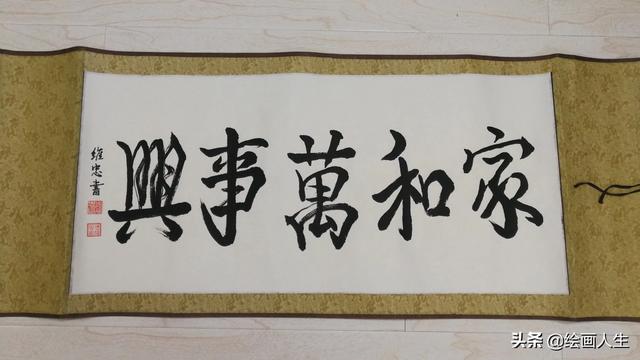 家和萬事興
維忠書
头条 @绘画人生